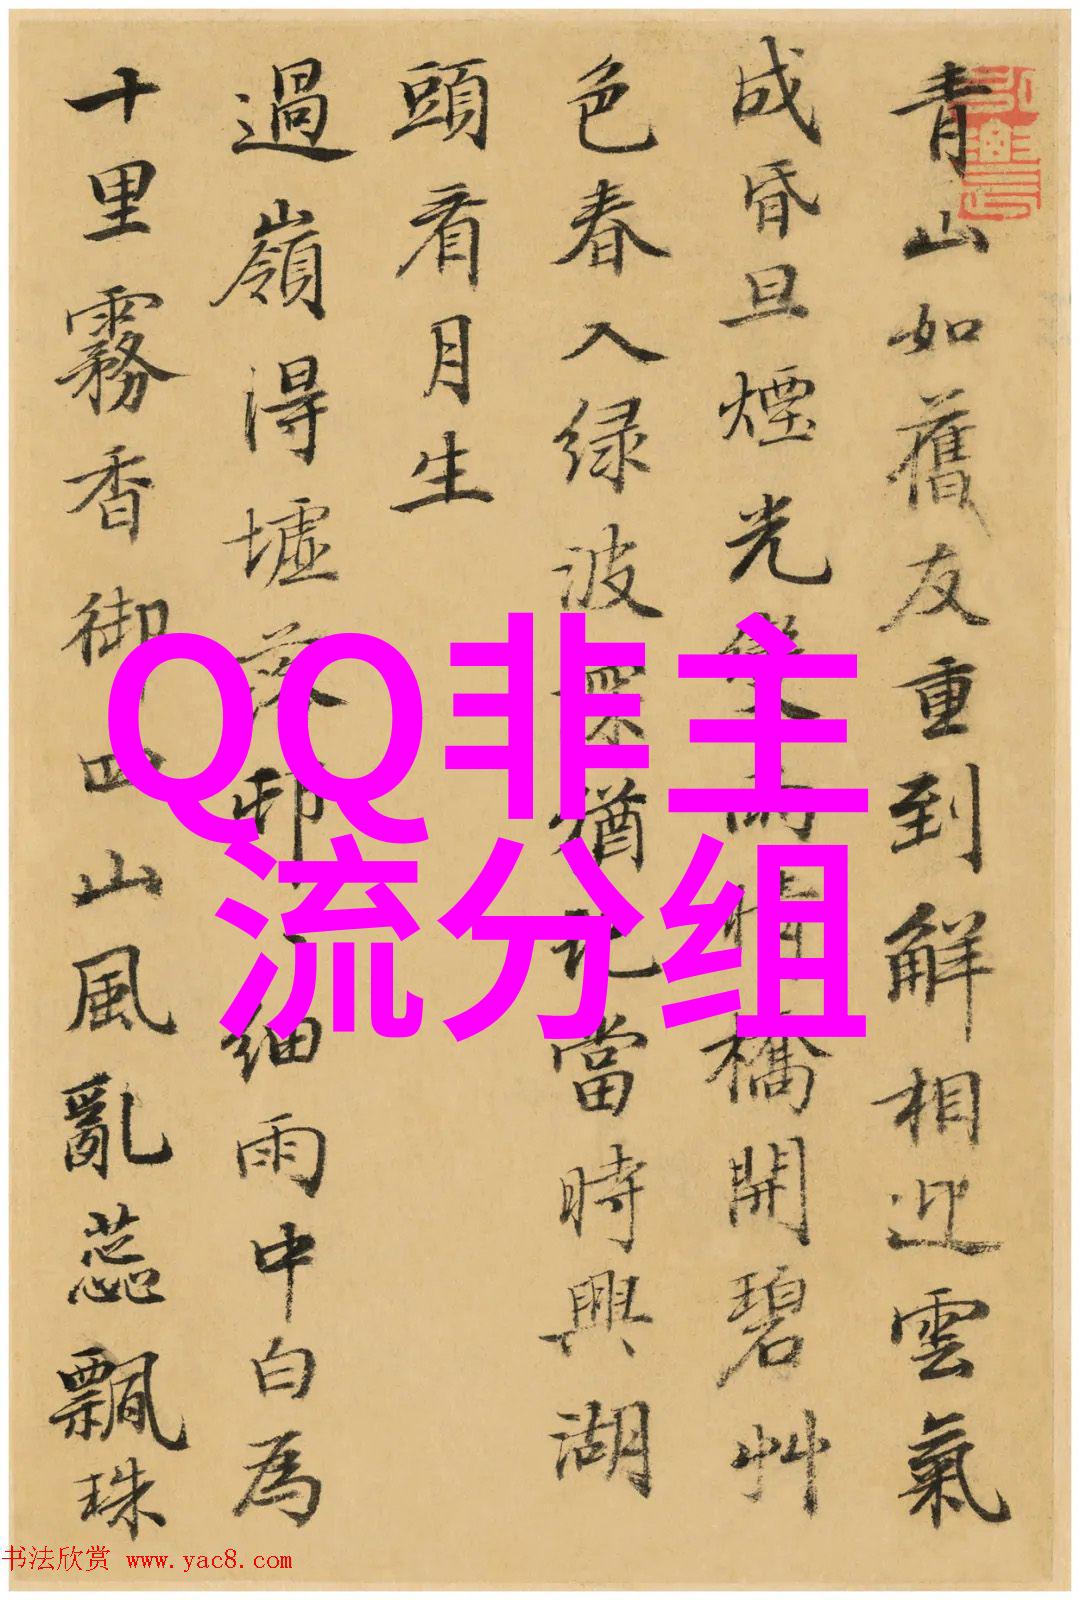 青山如舊友重到解相迎雲氣
成昏旦煙光變雨情橋開碧艸
色春入绿波深猶記當時興湖
頭看月生
過嶺得墟落邨細雨中白為
十里霧香御四山風亂蕊飄珠
QQ非主
流分组
书法欣赏 www.yac8.com